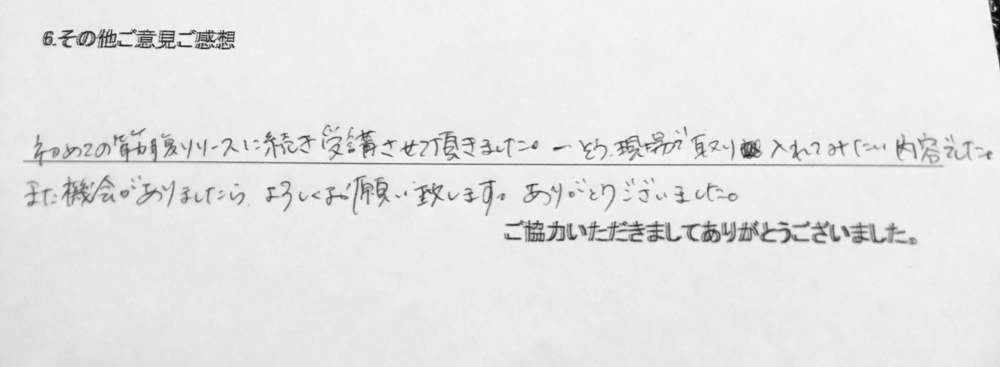 6.その他ご意見ご感想
初めての筋膜リリースに続き受講させて頂きました。一そう、現場で取り入れてみたい内容でした。
また機会がありましたら、よろしくお願い致します。ありがとうございました。
ご協力いただきましてありがとうございました。